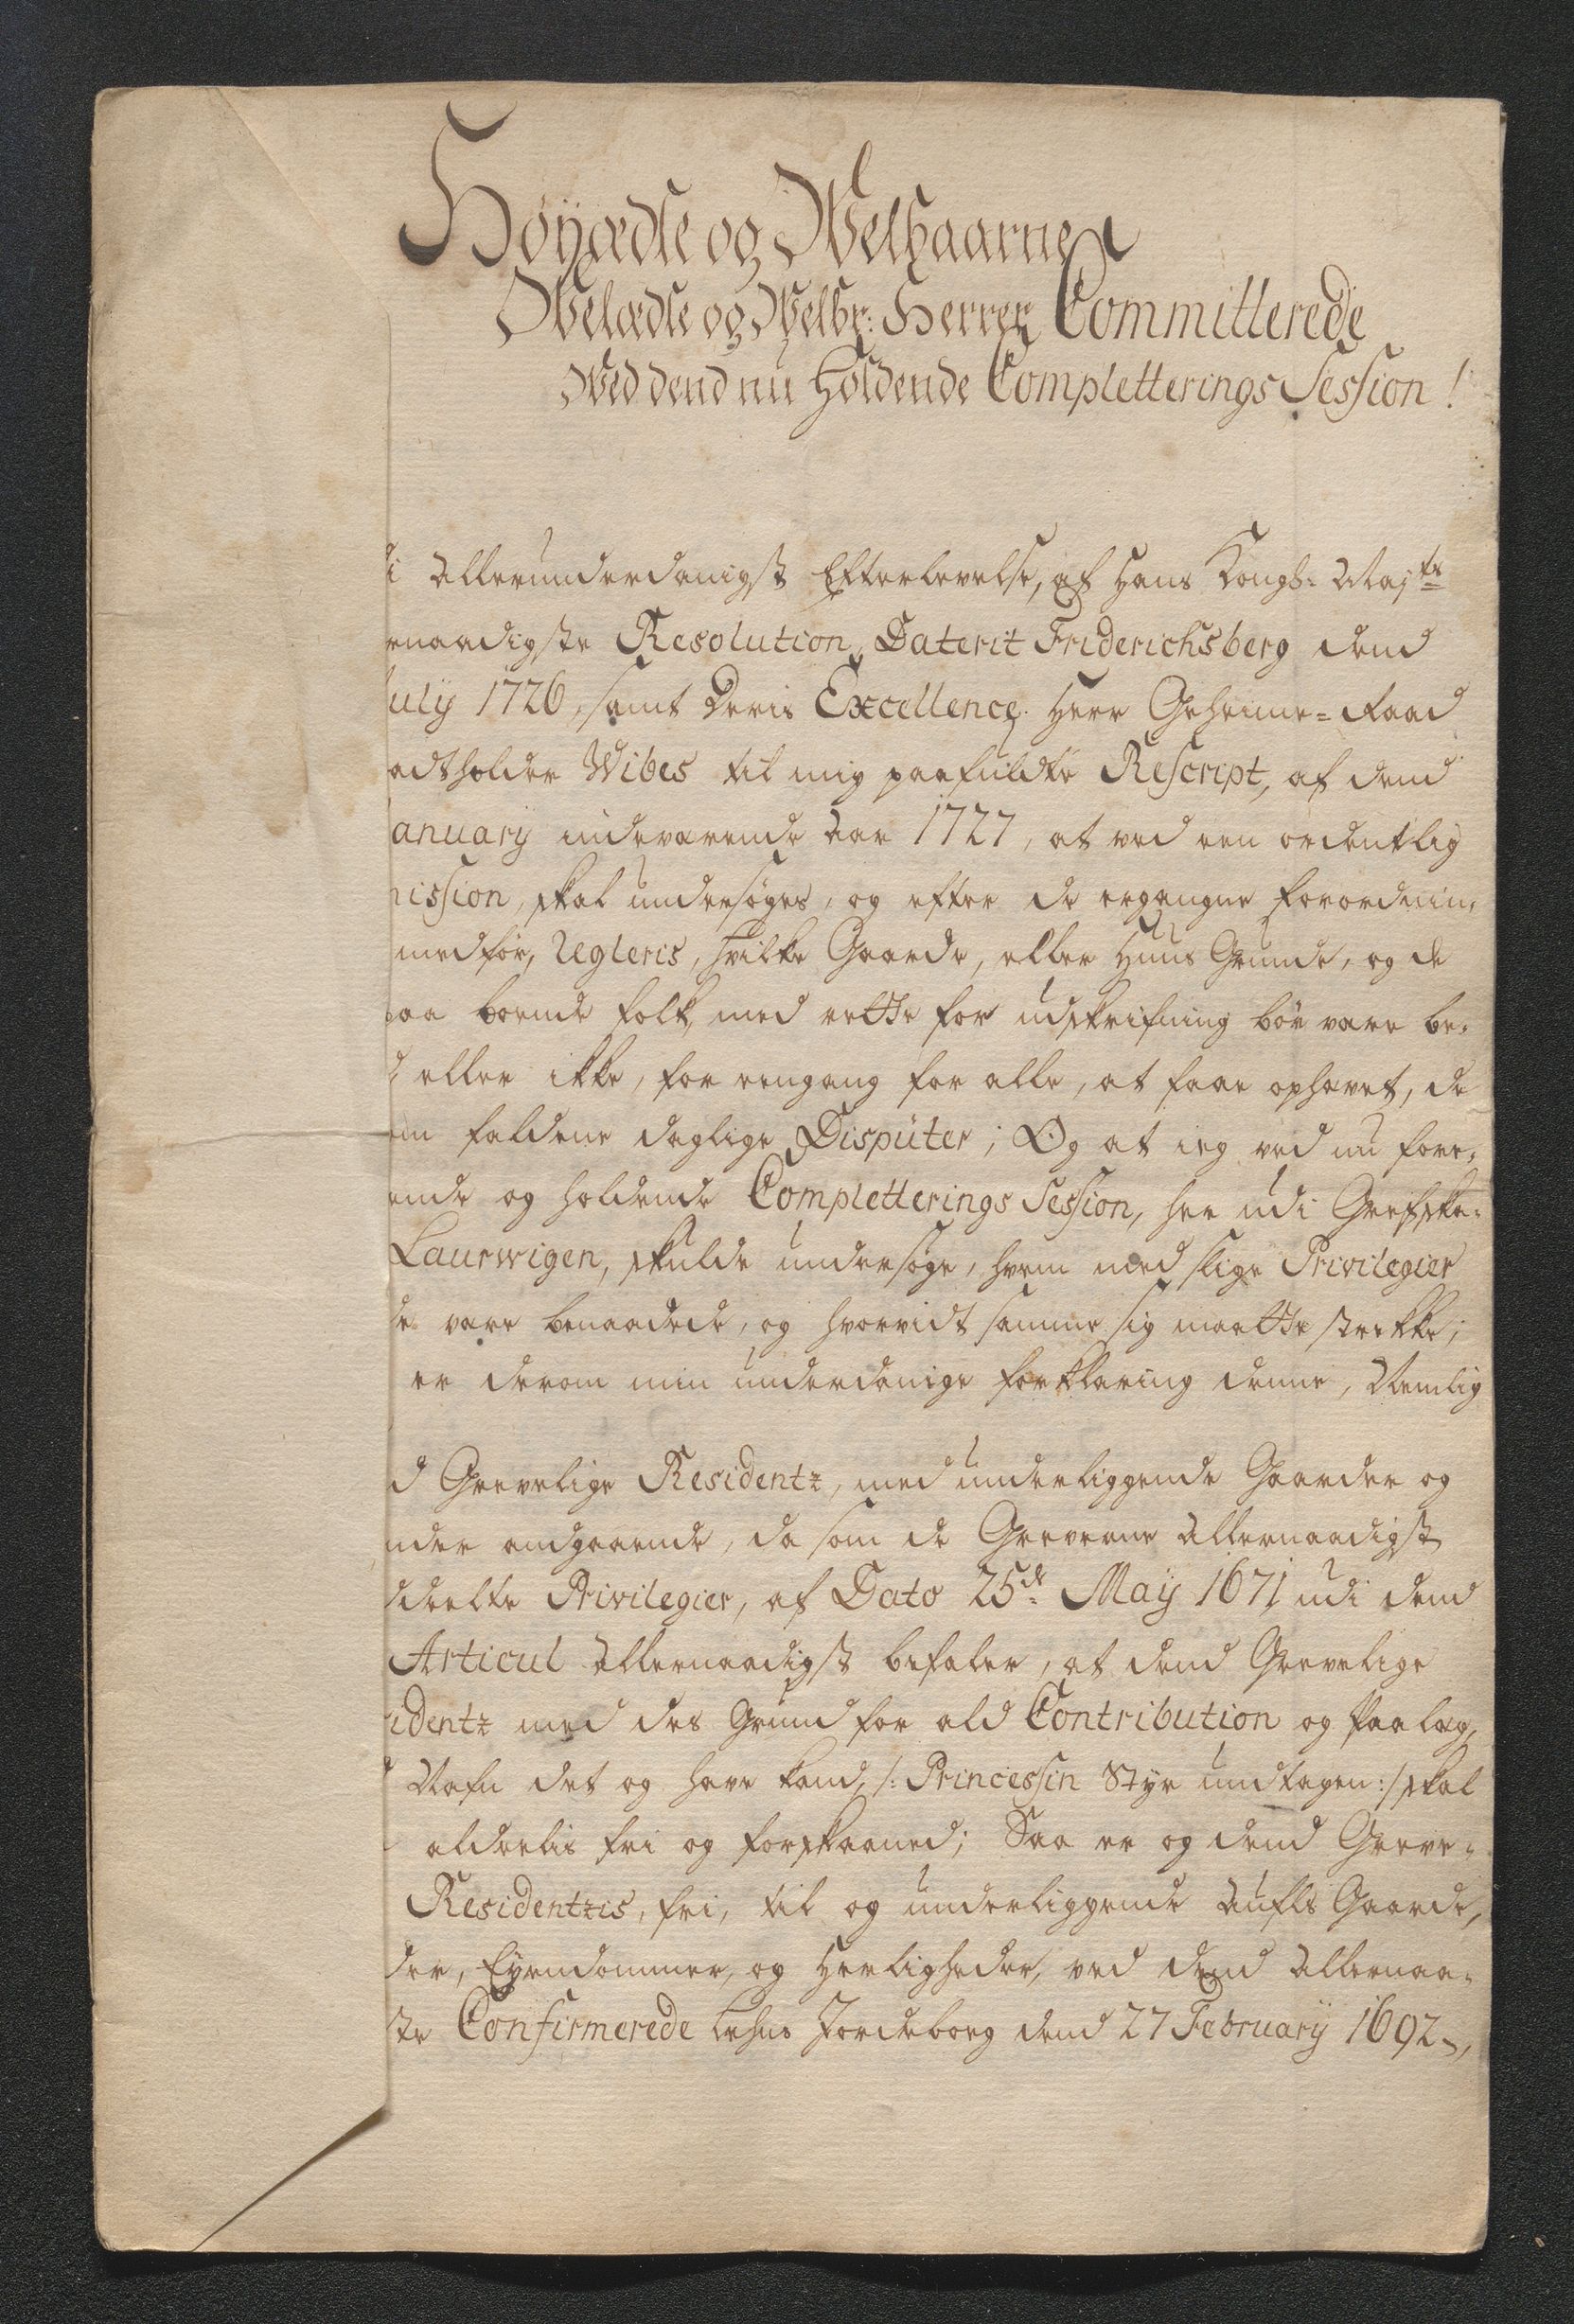 Høÿædle og Welbaarne
Welædle og Welbr: Herrer Committerede
Wed dend nu holdende Completterings Session!
i Allerunderdanigst Efterlevelse, af Hans Kongl: Maj:ts
rnaadigste Resolution, Daterit Friderichsberg dend
ulÿ 1726, samt Deris Excellence Herr Geheime=Raad
adtholder Wibes til mig paafuldte Rescript, af dend
anuarÿ indeværende Aar 1727, at ved een ordentlig
ission, skal undersøges, og efter de ergangne Forordnin,
medfør, Regleris, hvilke Gaarde, eller Huus Grunde, og de
aa boende folk, med rette for udskrifning bør være be,
eller ikke, for eengang for alle, at faae ophævet, de
faldene daglige Disputer; Og at ieg ved nu fore,
ende og holdende Completterings Session, her udi Grefska,
Laurwigen, skulde undersøge, hvem med slige Privilegier
de vare benaadede, og hvorvidt samme sig maatte strekke;
er derom min underdanige forklaring denne, Nemlig
d Grevelige Residentz, med underliggende Gaarder og
nder andgaaende, da som de Greverne Allernaadigst
ddeelte Privilegier, af Dato 25de May 1671 udi dend
Articul Allernaadigst befaler, at dend Grevelige
identz med des Grund for ald Contribution og Paalæg,
Nafn det og have kand, /: Princessin Styr undtagen :/ skal
alderlis fri og forskaaned; Saa er og dend Greve,
Residentzis, fri, til og underliggende Aufls Gaarde,
der, Eyendommer, og Herligheder, ved dend Allernaa,
ste Confirmerede Lehns Jordebog dend 27 Februarÿ 1692,